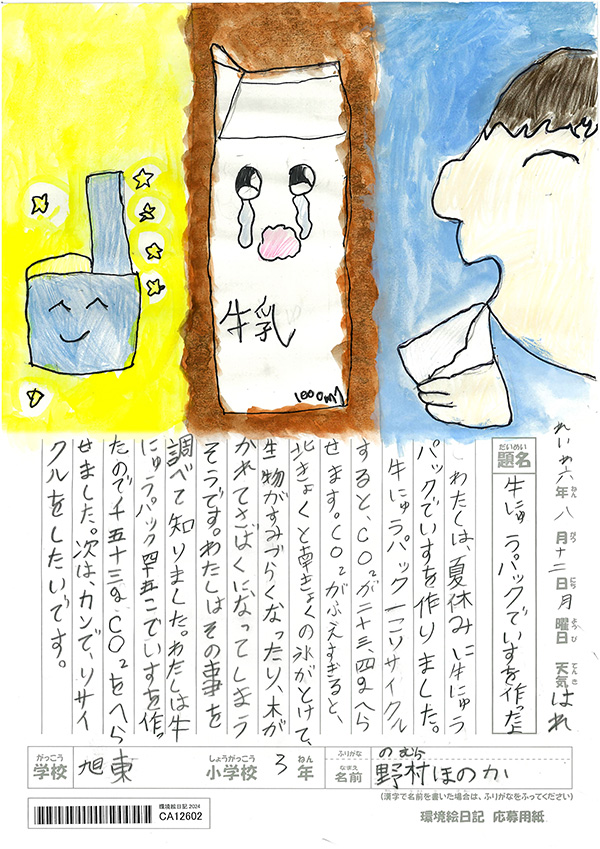 牛乳
1000ml
れいわ六年八月十二日月曜日 天気 はれ
ねん がつ にち ようび てんき
だいめい
題名 牛にゅうパックでいすを作ったよ
わたしは、夏休みに牛にゅう
パックでいすを作りました。
牛にゅうパック一こリサイクル
すると、CO²が二十三、四gへら
せます。CO²がふえすぎると、
北きょくと南きょくの氷がとけて、
生物がすみづらくなったり、木が
かれてさばくになってしまう
そうです。わたしはその事を
調べて知りました。わたしは牛
にゅうパック四十五こでいすを作っ
たので千五十三g、CO²をへら
せました。次は、カンで、リサイ
クルをしたいです。
がっこう しょうがっこう ねん ふりがな のむら
学校 旭東 小学校 3年 なまえ 名前 野村ほのか
(漢字で名前を書いた場合は、ふりがなをふってください)
環境絵日記 2024
CA12602
環境絵日記 応募用紙